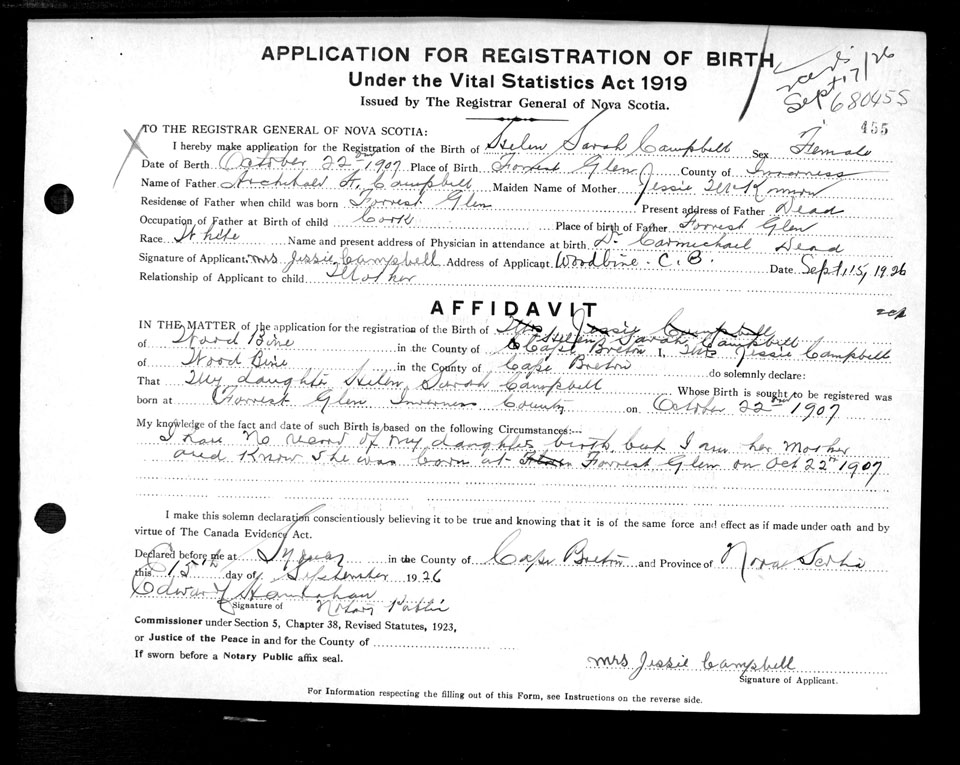 APPLICATION FOR REGISTRATION OF BIRTH
Under the Vital Statistics Act 1919
Issued by The Registrar General of Nova Scotia.
Sept 17/26
680455
455
TO THE REGISTRAR GENERAL OF NOVA SCOTIA:
I hereby make application for the Registration of the Birth of Helen Sarah Campbell Sex Female
Date of Birth October 22nd 1907 Place of Birth Forrest Glen County of Inverness
Name of Father Archibald A. Campbell Maiden Name of Mother Jessie
Residence of Father when child was born Forrest Glen Present address of Father Dead
Occupation of Father at Birth of child Cook Place of birth of Father Forrest Glen
Race White Name and present address of Physician in attendance at birth Dr Carmichael Dead
Signature of Applicant Mrs Jessie Campbell Address of Applicant Woodbine. C. B. Date Sept, 15, 1926
Relationship of Applicant to child Mother
AFFIDAVIT
IN THE MATTER of the application for the registration of the Birth of Mrs Jessie Campbell
Helen Sarah Campbell
of Wood Bine in the County of Cape Breton I, Mrs Jessie Campbell
of Wood Bine in the County of Cape Breton do solemnly declare:
That My daughter Helen Sarah Campbell Whose Birth is sought to be registered was
born at Forrest Glen Inverness County on October 22nd 1907
My knowledge of the fact and date of such Birth is based on the following Circumstances:—
I have No record of my daughter birth, but I am her Mother
and Know She was born at Forrest Glen on Oct 22nd 1907
I make this solemn declaration conscientiously believing it to be true and knowing that it is of the same force and effect as if made under oath and by
virtue of The Canada Evidence Act.
Declared before me at Sydney in the County of Cape Breton and Province of Nova Scotia
this 15th day of September 1926
Edward
Signature of Notary Public
Commissioner under Section 5, Chapter 38, Revised Statutes, 1923,
or Justice of the Peace in and for the County of
If sworn before a Notary Public affix seal.
Mrs Jessie Campbell
Signature of Applicant.
For Information respecting the filling out of this Form, see Instructions on the reverse side.